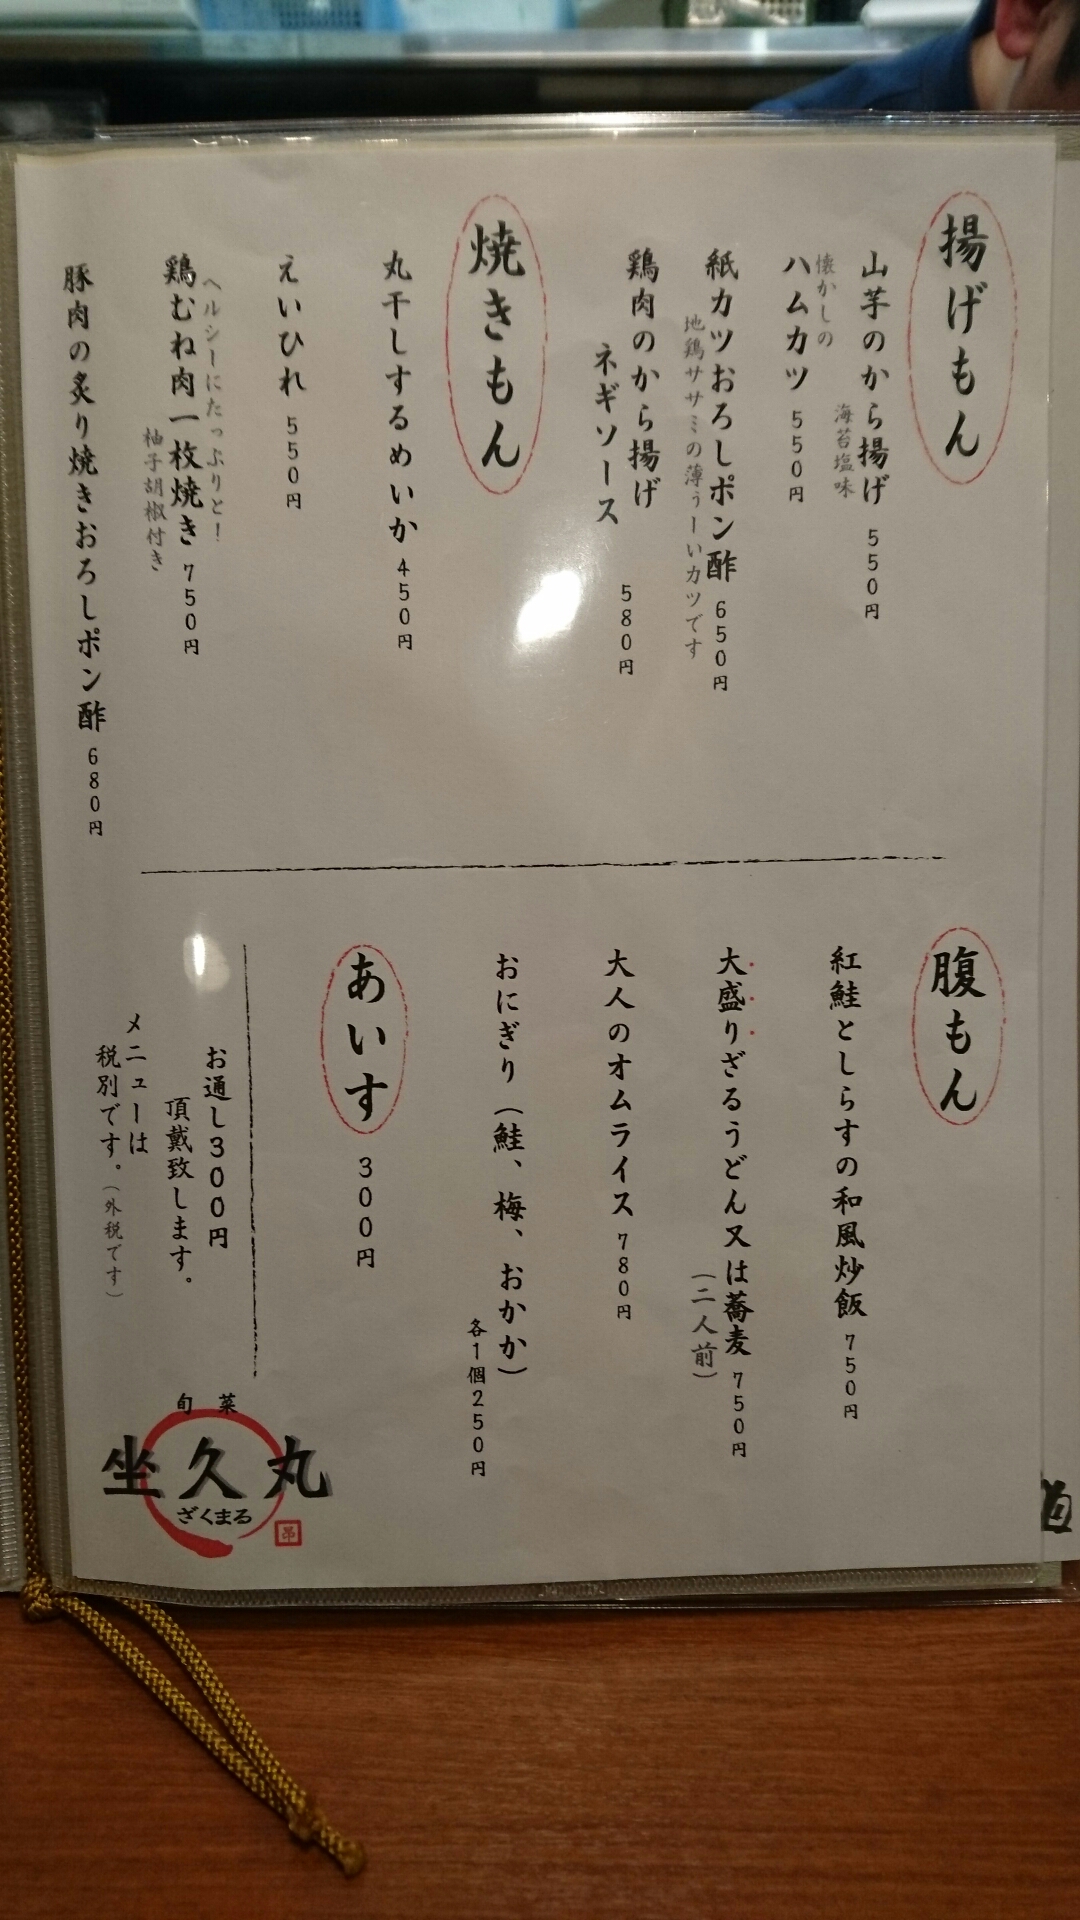 揚げもん
山芋のから揚げ 550円
海苔塩味
懐かしの
ハムカツ 550円
紙カツおろしポン酢 650円
地鶏ササミの薄うーいカツです
鶏肉のから揚げ
ネギソース
580円
焼きもん
丸干しするめいか 450円
えいひれ 550円
ヘルシーにたっぷりと！
鶏むね肉一枚焼き 750円
柚子胡椒付き
豚肉の炙り焼きおろしポン酢 680円
腹もん
紅鮭としらすの和風炒飯 750円
大盛りざるうどん又は蕎麦 750円
（二人前）
大人のオムライス 780円
おにぎり（鮭、梅、おかか）
各1個250円
あいす 300円
お通し300円
頂戴致します。
メニューは
税別です。（外税です）
旬菜
坐久丸
ざくまる